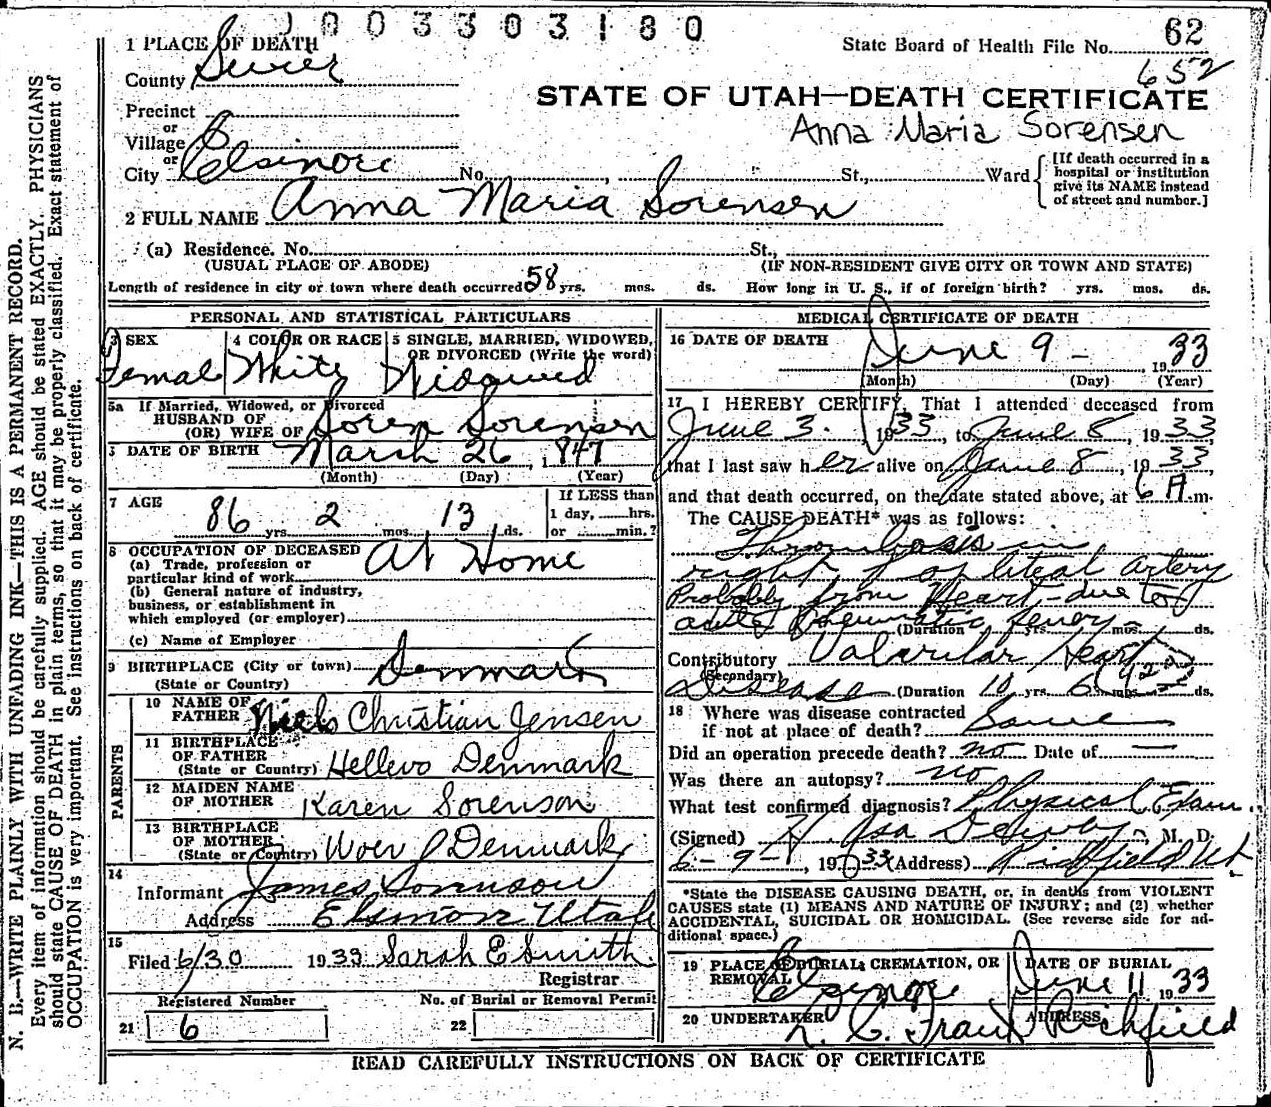 1003303180
1 PLACE OF DEATH
State Board of Health File No. 62
652
County Sevier
STATE OF UTAH—DEATH CERTIFICATE
Precinct
Anna Maria Sorensen
or
Village
or
City Elsinore No. , St., Ward
[If death occurred in a
hospital or institution
give its NAME instead
of street and number.]
2 FULL NAME Anna Maria Sorensen
(a) Residence. No. St.,
(USUAL PLACE OF ABODE) (IF NON-RESIDENT GIVE CITY OR TOWN AND STATE)
Length of residence in city or town where death occurred 58 yrs. mos. ds. How long in U. S., if of foreign birth? yrs. mos. ds.
PERSONAL AND STATISTICAL PARTICULARS
3 SEX 4 COLOR OR RACE 5 SINGLE, MARRIED, WIDOWED,
OR DIVORCED (Write the word)
Female White Widowed
5a If Married, Widowed, or Divorced
HUSBAND OF
(OR) WIFE OF Soren Sorensen
6 DATE OF BIRTH March 26, 1847
(Month) (Day) (Year)
7 AGE 86 yrs. 2 mos. 13 ds.
If LESS than
1 day, hrs.
or min.?
8 OCCUPATION OF DECEASED At Home
(a) Trade, profession or
particular kind of work
(b) General nature of industry,
business, or establishment in
which employed (or employer)
(c) Name of Employer
9 BIRTHPLACE (City or town) Denmark
(State or Country)
PARENTS
10 NAME OF
FATHER Niels Christian Jensen
11 BIRTHPLACE
OF FATHER
(State or Country) Hellevo Denmark
12 MAIDEN NAME
OF MOTHER Karen Sorenson
13 BIRTHPLACE
OF MOTHER
(State or Country) Woer Denmark
14
Informant James Sorenson
Address Elsinore Utah
15
Filed 6/30 1933 Sarah E Smith
Registrar
Registered Number No. of Burial or Removal Permit
21 6 22
MEDICAL CERTIFICATE OF DEATH
16 DATE OF DEATH
June 9 - , 1933
(Month) (Day) (Year)
17 I HEREBY CERTIFY, That I attended deceased from
June 3. 1933, to June 8, 1933,
that I last saw her alive on June 8, 1933
and that death occurred, on the date stated above, at 6 A.m.
The CAUSE DEATH* was as follows:
Thrombosis in
right popliteal artery
Probably from Heart-due to
acute Rheumatic fever
(Duration yrs. mos. ds.
Contributory Valvular Heart
(Secondary)
Disease (Duration 10 yrs. 6 mos. ds.
92a
18 Where was disease contracted
if not at place of death? Same
Did an operation precede death? no Date of
Was there an autopsy? no
What test confirmed diagnosis? Physical Exam.
(Signed) H. Asa Dewey, M. D.
6-9-, 1933 (Address) Richfield Ut.
*State the DISEASE CAUSING DEATH, or, in deaths from VIOLENT
CAUSES state (1) MEANS AND NATURE OF INJURY; and (2) whether
ACCIDENTAL, SUICIDAL OR HOMICIDAL. (See reverse side for ad-
ditional space.)
19 PLACE OF BURIAL, CREMATION, OR
REMOVAL Elsinore
DATE OF BURIAL
June 11 1933
20 UNDERTAKER ADDRESS
Richfield
READ CAREFULLY INSTRUCTIONS ON BACK OF CERTIFICATE
N. B.—WRITE PLAINLY WITH UNFADING INK—THIS IS A PERMANENT RECORD.
Every item of information should be carefully supplied. AGE should be stated EXACTLY. PHYSICIANS
should state CAUSE OF DEATH in plain terms, so that it may be properly classified. Exact statement of
OCCUPATION is very important. See instructions on back of certificate.